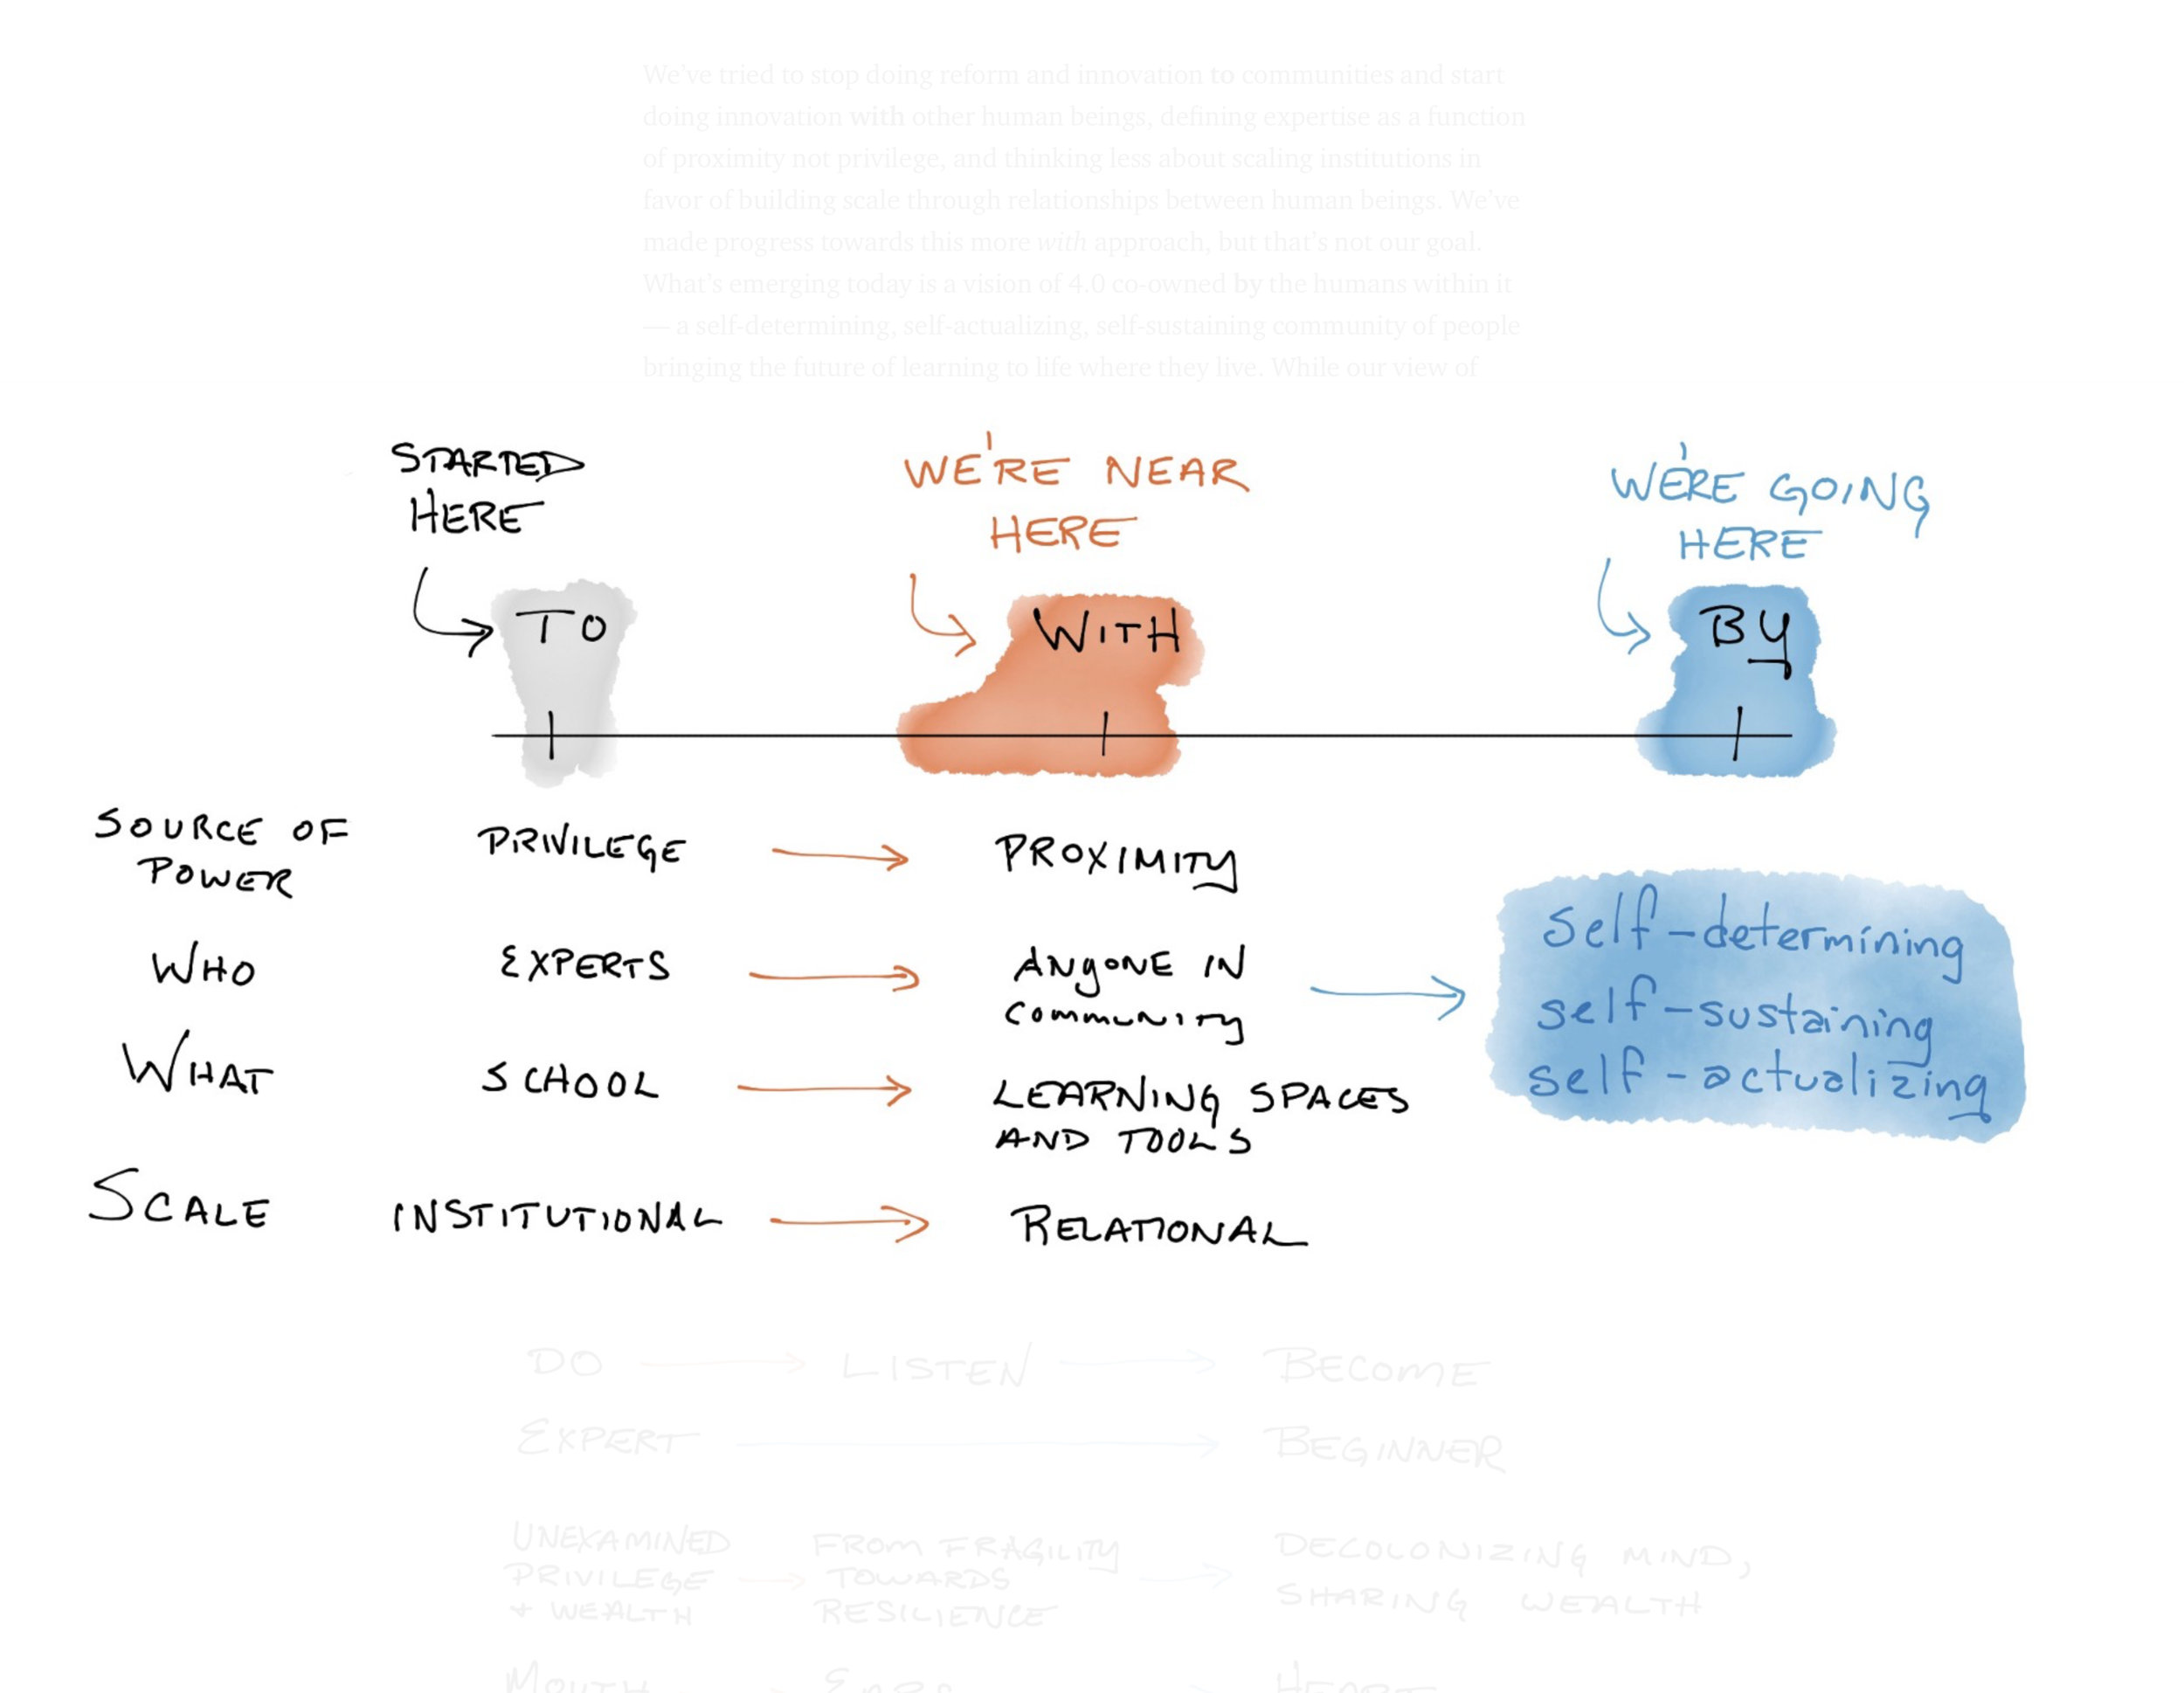 We've tried to stop doing reform and innovation to communities and start
doing innovation with other human beings, defining expertise as a function
of proximity not privilege, and thinking less about scaling institutions in
favor of building scale through relationships between human beings. We've
made progress towards this more with approach, but that's not our goal.
What's emerging today is a vision of 4.0 co-owned by the humans within it
— a self-determining, self-actualizing, self-sustaining community of people
bringing the future of learning to life where they live. While our view of
STARTED
HERE
WE'RE NEAR
HERE
WE'RE GOING
HERE
TO
WITH
BY
SOURCE OF
POWER
PRIVILEGE
PROXIMITY
WHO
EXPERTS
ANYONE IN
COMMUNITY
WHAT
SCHOOL
LEARNING SPACES
AND TOOLS
self-determining
self-sustaining
self-actualizing
SCALE
INSTITUTIONAL
RELATIONAL
DO
LISTEN
BECOME
EXPERT
BEGINNER
UNEXAMINED
PRIVILEGE
+ WEALTH
FROM FRAGILITY
TOWARDS
RESILIENCE
DECOLONIZING MIND,
SHARING WEALTH
MOUTH
EARS
HEART